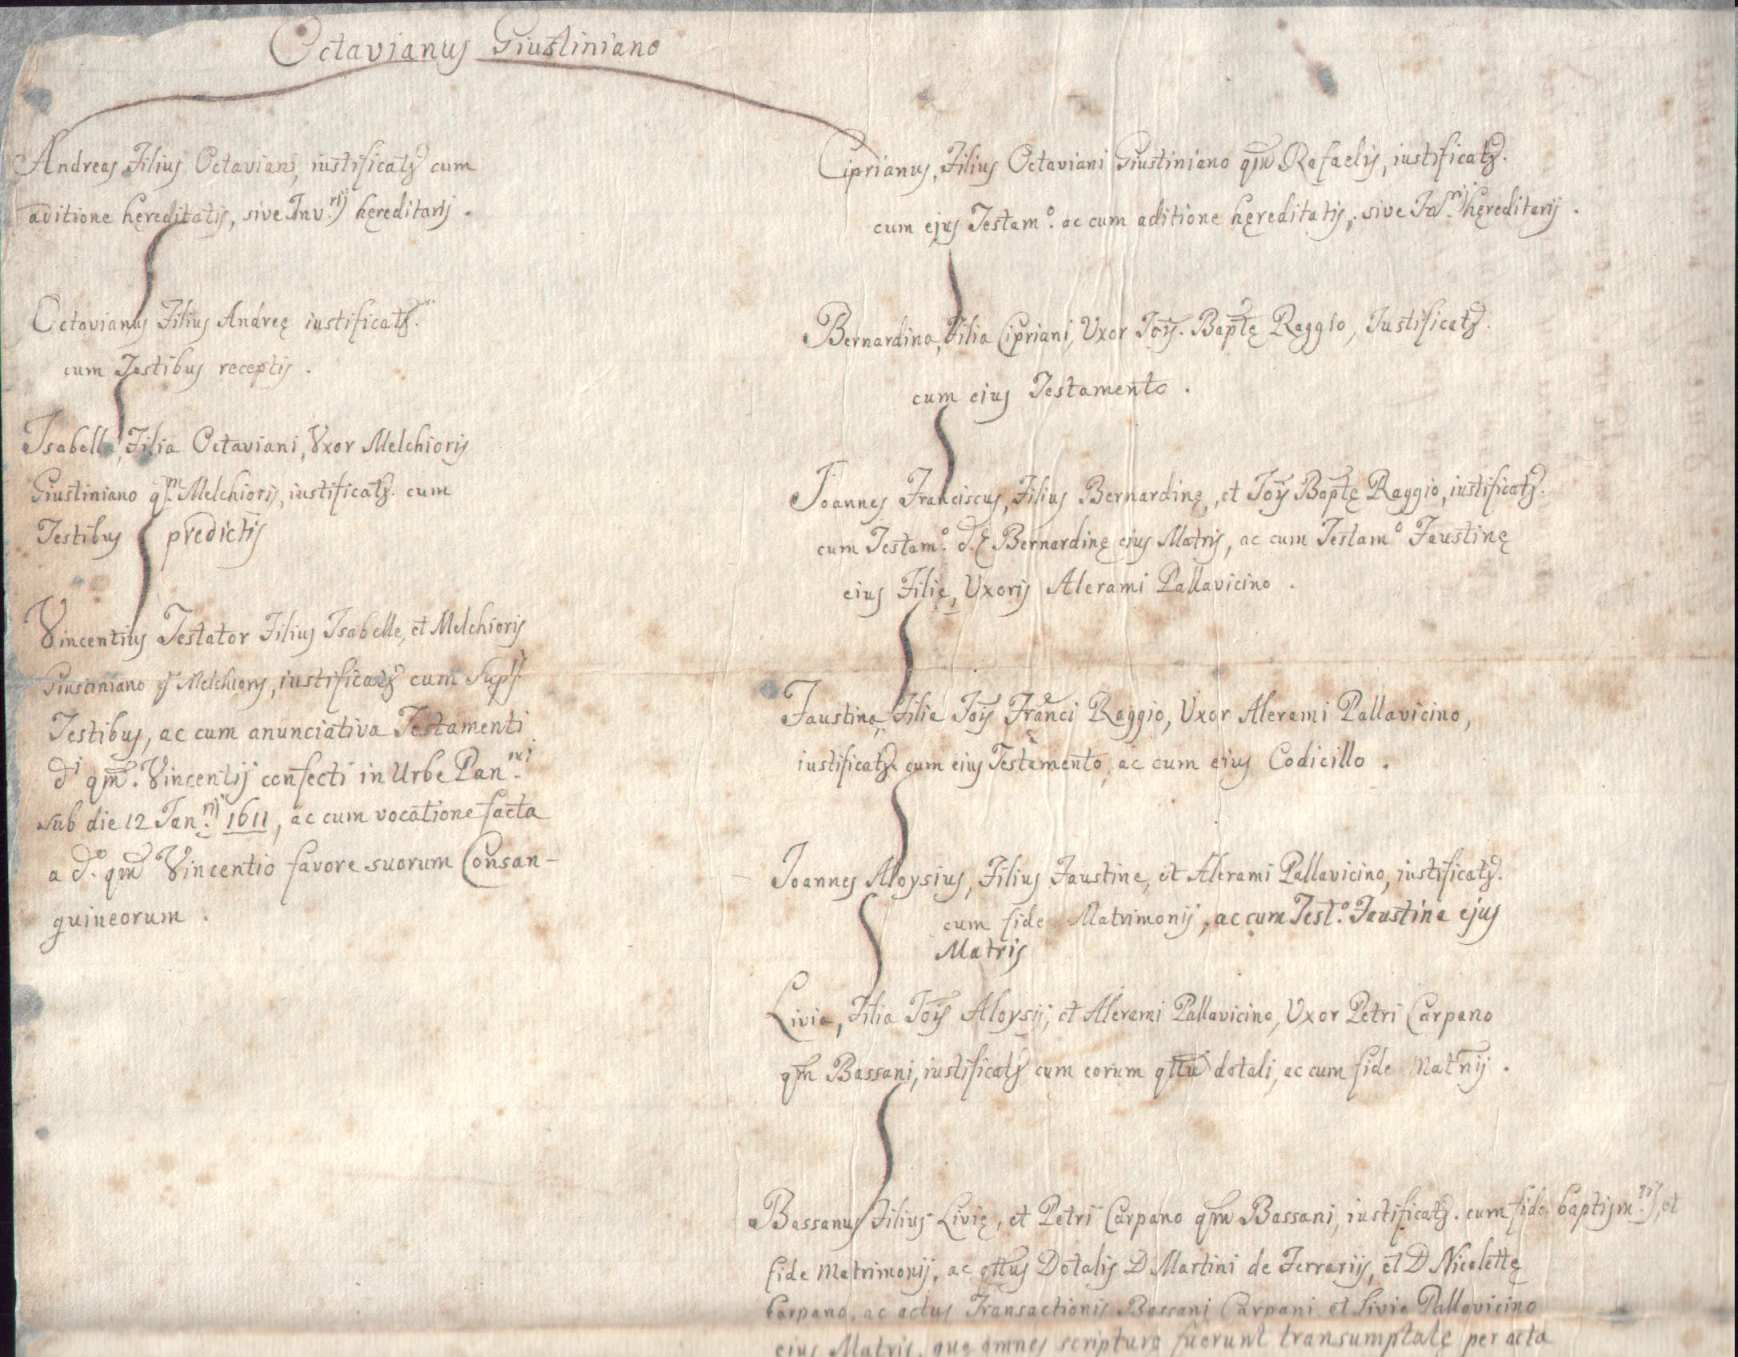 Octavianus Giustiniano
Andreas Filius Octaviani, iustificatʒ cum
aditione hęreditatis, sive Inv.rij hęreditarij.
Octavianus Filius Andreę iustificatʒ.
cum Testibus receptis.
Isabella, Filia Octaviani, Vxor Melchioris
Giustiniano qm Melchioris, iustificatʒ. cum
Testibus predictis
Vincentius Testator Filius Isabelle, et Melchioris
Giustiniano q Melchioris, iustificatʒ cum
Testibus, ac cum anunciativa Testamenti
di qm. Vincentij confecti in Urbe Pan.
sub die 12 Jan.rij 1611, ac cum vocatione facta
a do. qm Vincentio favore suorum Consan-
guineorum.
Ciprianus, Filius Octaviani Giustiniano qm Rafaelis, iustificatʒ.
cum ejus Testam.o ac cum aditione hęreditatis, sive hęreditarij.
Bernardina, Filia Cipriani, Vxor Jois. Baptę Raggio, Iustificatʒ.
cum eius Testamento.
Joannes Franciscus, Filius Bernardinę, et Jois Baptę Raggio, iustificatʒ.
cum Testam.o d.ę Bernardinę eius Matris, ac cum Testam.o Faustinę
eius Filię, Vxoris Alerami Pallavicino.
Faustina, Filia Jois Franci Raggio, Vxor Alerami Pallavicino,
iustificatʒ cum eius Testamento, ac cum eius Codicillo.
Joannes Aloysius, Filius Faustine, et Alerami Pallavicino, iustificatʒ.
cum fide Matrimonij, ac cum Test.o Faustine ejus
Matris
Livia, Filia Jois Aloysij, et Alerami Pallavicino, Vxor Petri Carpano
qm Bassani, iustificatʒ cum eorum dotali, ac cum fide Matrnij.
Bassanus Filius Livię, et Petri Carpano qm Bassani, iustificatʒ. cum fide baptism., et
fide Matrimonij, ac Dotalis D Martini de Ferrarijs, et D Nicolettę
Carpano, ac actus Transactionis Bassani Carpani et Livie Pallavicino
eius Matris, quę omnes scripturę fuerunt transumptatę per acta